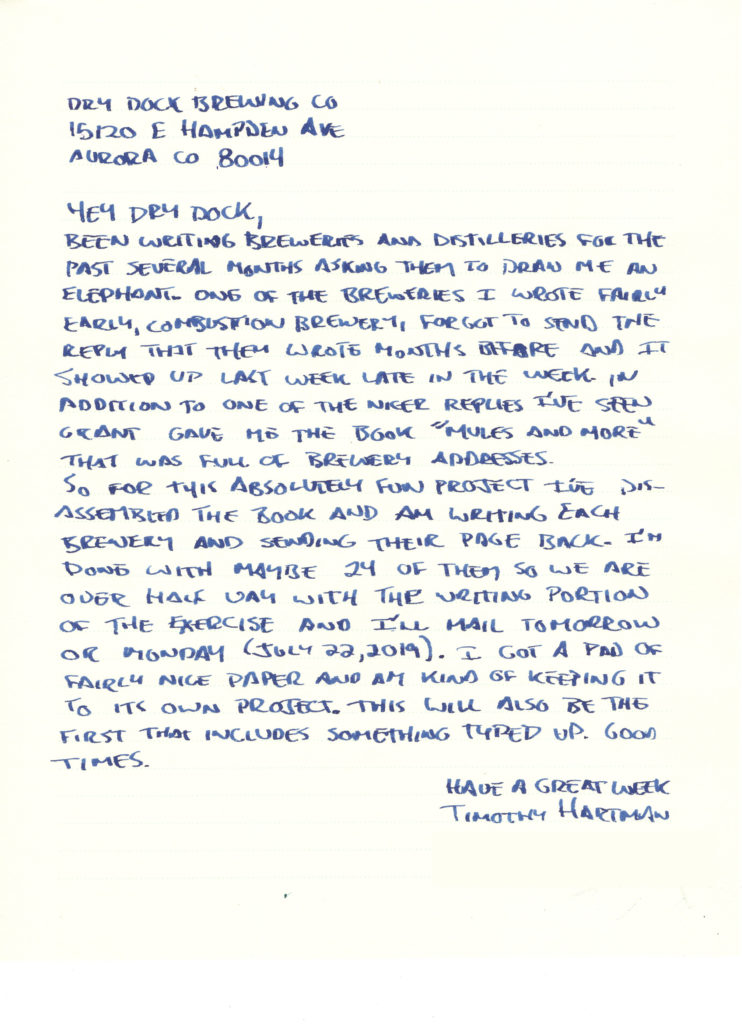 DRY DOCK BREWING CO
15120 E HAMPDEN AVE
AURORA CO 80014
HEY DRY DOCK,
BEEN WRITING BREWERIES AND DISTILLERIES FOR THE
PAST SEVERAL MONTHS ASKING THEM TO DRAW ME AN
ELEPHANT. ONE OF THE BREWERIES I WROTE FAIRLY
EARLY, COMBUSTION BREWERY, FORGOT TO SEND THE
REPLY THAT THEY WROTE MONTHS BEFORE AND IT
SHOWED UP LAST WEEK LATE IN THE WEEK. IN
ADDITION TO ONE OF THE NICER REPLIES I'VE SEEN
GRANT GAVE ME THE BOOK "MULES AND MORE"
THAT WAS FULL OF BREWERY ADDRESSES.
SO FOR THIS ABSOLUTELY FUN PROJECT I'VE DIS-
ASSEMBLED THE BOOK AND AM WRITING EACH
BREWERY AND SENDING THEIR PAGE BACK. I'M
DONE WITH MAYBE 24 OF THEM SO WE ARE
OVER HALF WAY WITH THE WRITING PORTION
OF THE EXERCISE AND I'LL MAIL TOMORROW
OR MONDAY (JULY 22, 2019). I GOT A PAD OF
FAIRLY NICE PAPER AND AM KIND OF KEEPING IT
TO ITS OWN PROJECT. THIS WILL ALSO BE THE
FIRST THAT INCLUDES SOMETHING TYPED UP. GOOD
TIMES.
HAVE A GREAT WEEK
TIMOTHY HARTMAN